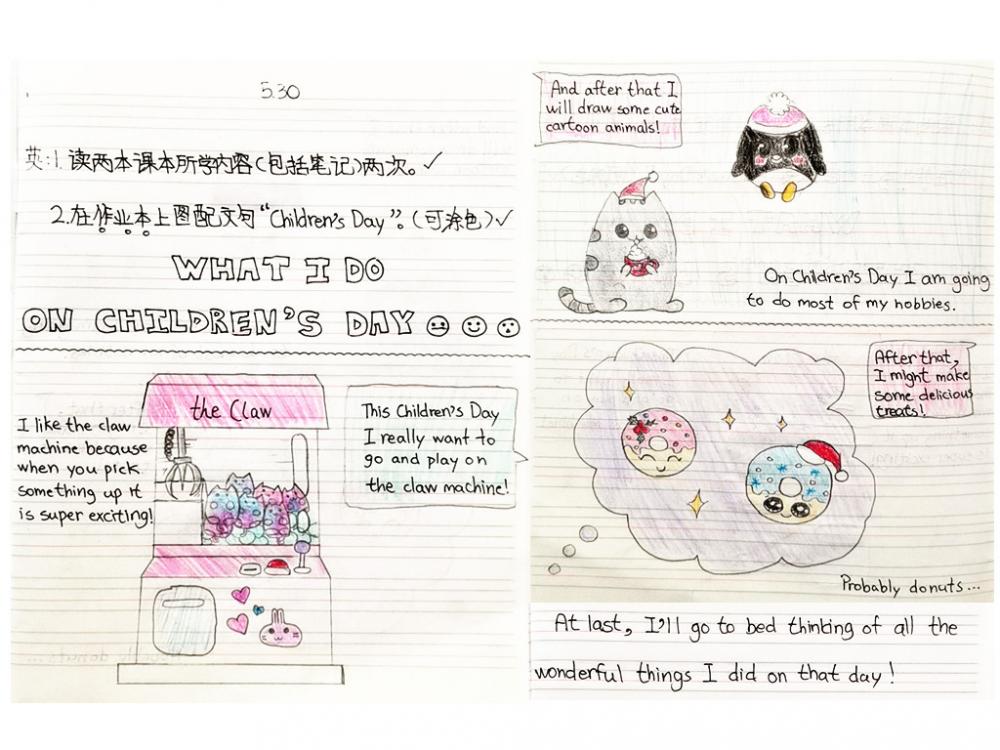 5.30
英:1.读两本课本所学内容(包括笔记)两次。✓
2.在作业本上图配文句“Children's Day”。(可涂色)✓
WHAT I DO
ON CHILDREN'S DAY
the Claw
I like the claw
machine because
when you pick
something up it
is super exciting!
This Children's Day
I really want to
go and play on
the claw machine!
And after that I
will draw some cute
cartoon animals!
On Children's Day I am going
to do most of my hobbies.
After that,
I might make
some delicious
treats!
Probably donuts...
At last, I'll go to bed thinking of all the
wonderful things I did on that day!